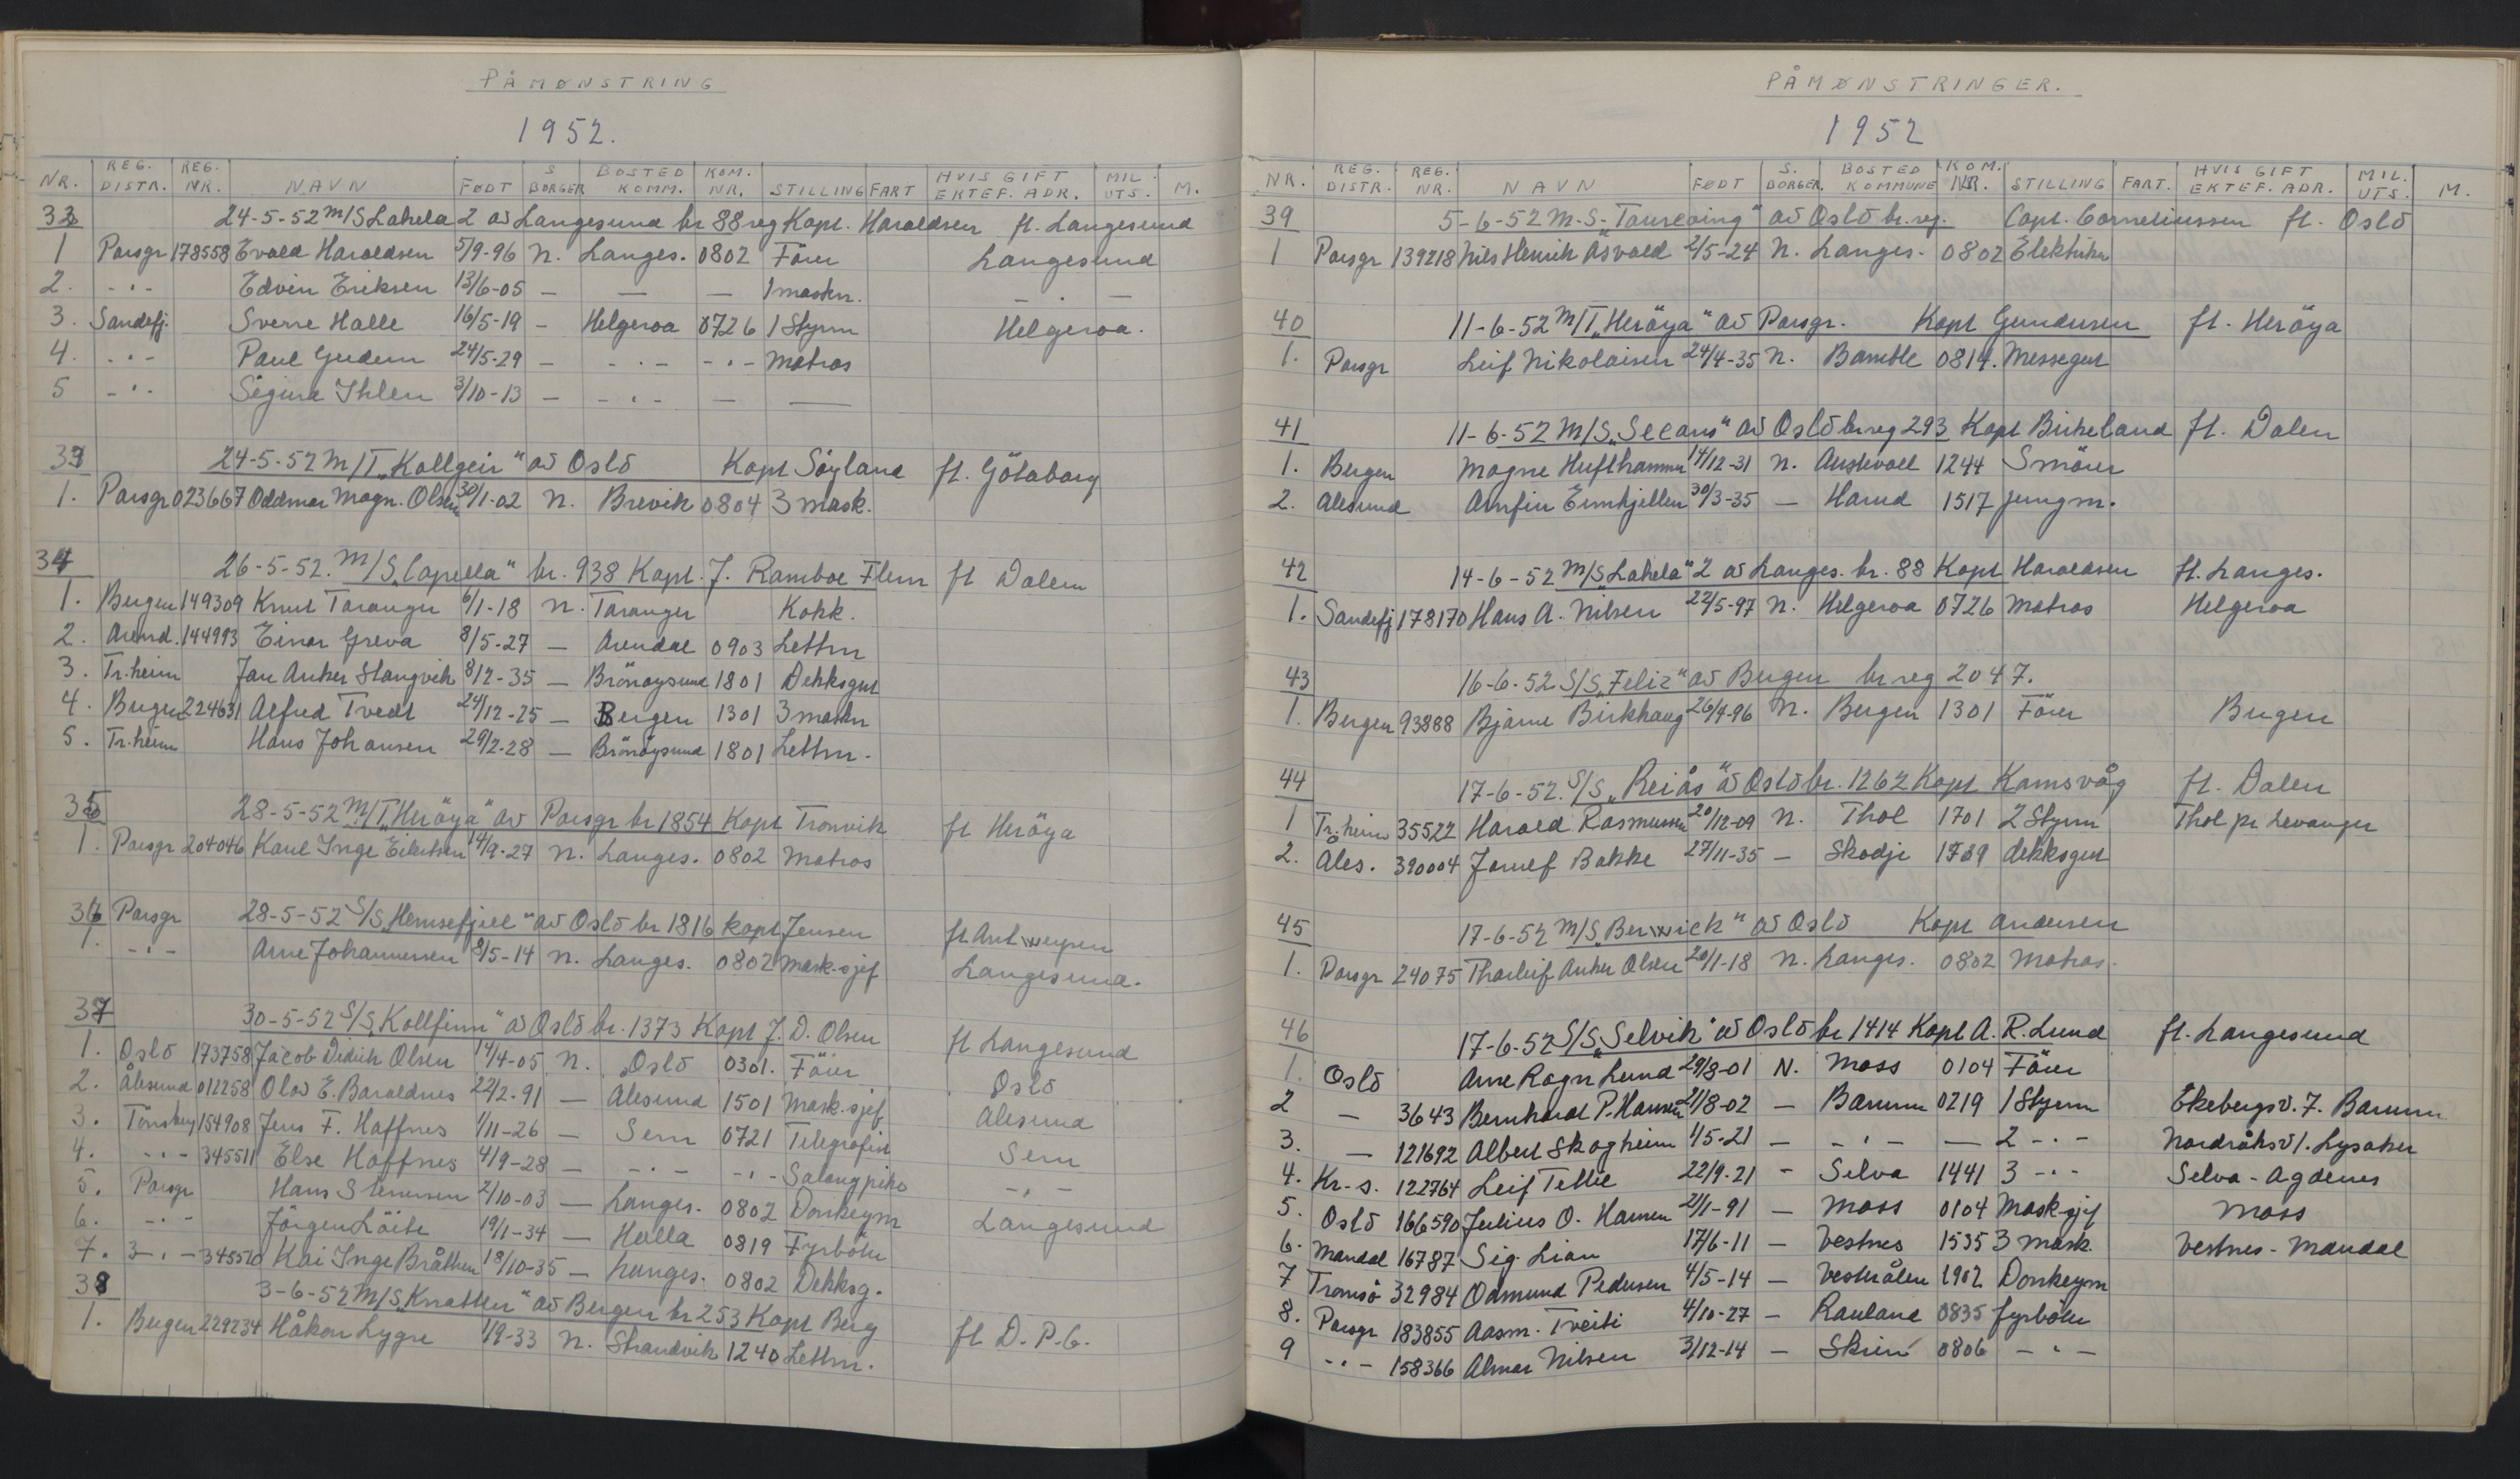 PÅMØNSTRING
1952.
NR. REG. DISTR. REG. NR. NAVN FØDT S BORGER BOSTED KOMM. KOM. NR. STILLING FART HVIS GIFT EKTEF. ADR. MIL. UTS. M.
24-5-52 M/S Lahela 2 av Langesund br 88 reg Kapt. Haraldsen ft. Langesund
1 Porsgr 178558 Evald Haraldsen 5/9-96 N. Langes. 0802 Förer Langesund
2. -"- Edvin Eriksen 13/6-05 — — — 1 maskn. — . —
3. Sandefj. Sverre Halle 16/5-19 - Helgeroa 0726 1 Styrm Helgeroa.
4. -"- Paul Gudem 24/5-29 — -"- -"- Matros
5 -"- Sigurd Ihlen 3/10-13 — -"- — —
33
24-5-52 M/T „Kollgeir" av Oslo Kapt Söyland ft. Götaborg
1. Porsgr 023667 Oddmar Magn. Olsen 30/1-02 N. Brevik 0804 3 mask.
34
26-5-52. M/S „Capella" br. 938 Kapt. J. Ramboe Flem ft Dalen
1. Bergen 149309 Knut Taranger 6/1-18 N. Taranger Kokk.
2. Arend. 144993 Einar Greva 8/5-27 — Arendal 0903 Lettm
3. Tr.heim Jan Anker Stangvik 8/12-35 — Brönöysund 1801 Dekksgut
4. Bergen 224631 Alfred Tvedt 24/12-25 — Bergen 1301 3 maskn
5. Tr.heim Hans Johansen 29/2-28 — Brönöysund 1801 Lettm.
35
28-5-52 M/T „Heröya" av Porsgr br 1854 Kapt Tronvik ft Heröya
1. Porsgr 204046 Karl Inge Eilertsen 14/9-27 N. Langes. 0802 Matros
36 Porsgr 28-5-52 S/S „Hemsefjell" av Oslo br 1816 kapt Jensen ft Antwerpen
1. -"- Arne Johannessen 8/5-14 N. Langes. 0802 Mask-sjef Langesund.
37
30-5-52 S/S „Kollfinn" av Oslo br. 1373 Kapt J. D. Olsen ft Langesund
1. Oslo 173758 Jacob Didrik Olsen 14/4-05 N. Oslo 0301. Förer Oslo
2. Ålesund 012258 Olav E. Baraldsnes 22/2-91 — Alesund 1501 Mask-sjef Alesund
3. Tönsberg 154908 Jens F. Haffnes 1/11-26 — Sem 0721 Telegrafist Sem
4. -"- 345511 Else Haffnes 4/9-28 — -"- -"- Salongpike -"-
5. Porsgr Hans Stenersen 2/10-03 — Langes. 0802 Donkeym Langesund
6. -"- Jörgen Löite 19/1-34 — Holla 0819 Fyrböter
7. -"- 345510 Kai Inge Bråthen 18/10-35 — Langes. 0802 Dekksg.
38
3-6-52 M/S „Knatten" av Bergen br 253 Kapt Berg ft D.P.G.
1. Bergen 229234 Håkon Lygre 1/9-33 N. Strandvik 1240 Lettm.
PÅMØNSTRINGER.
1952
NR. REG. DISTR. REG. NR. NAVN FØDT S. BORGER. BOSTED KOMMUNE KOM. NR. STILLING FART. HVIS GIFT EKTEF. ADR. MIL. UTS. M.
39 5-6-52 M-S- av Oslo br. reg. Capt. Corneliussen ft. Oslo
1 Porsgr 139218 Nils Henrik Åsvald 2/5-24 N. Langes. 0802 Elektriker
40 11-6-52 M/T „Heröya" av Porsgr. Kapt Gundersen ft. Heröya
1. Porsgr Leif Nikolaisen 24/4-35 N. Bamble 0814. Messegut
41 11-6-52 M/S „Secans" av Oslo br reg 293 Kapt Birkeland ft. Dalen
1. Bergen Magne Hufthammer 14/12-31 N. Austevoll 1244 Smörer
2. Alesund Arnfin 30/3-35 — Hareid 1517 jungm.
42 14-6-52 M/S „Lahela" 2 av Langes. br. 88 Kapt Haraldsen ft. Langes.
1. Sandefj 178170 Hans A. Nilsen 22/5-97 N. Helgeroa 0726 Matros Helgeroa
43 16-6-52 S/S „Feliz" av Bergen br reg 2047.
1. Bergen 93888 Bjarne Birkhaug 26/4-96 N. Bergen 1301 Förer Bergen
44 17-6-52. S/S „Reiås" av Oslo br. 1262 Kapt Kamsvåg ft. Dalen
1 Tr.heim 35522 Harald Rasmussen 20/12-09 N. Thol 1701 2 Styrm Thol pr Levanger
2. Ales. 390004 Jomef Bakke 27/11-35 — Skodje 1529 dekksgut
45 17-6-52 M/S „Berwick" av Oslo Kapt Andersen
1. Porsgr 24075 Thorleif Anker Olsen 20/1-18 N. Langes. 0802 Matros.
46 17-6-52 S/S „Selvik" av Oslo br 1414 Kapt A. R. Lund ft. Langesund
1. Oslo Arne Ragn Lund 29/8-01 N. Moss 0104 Förer
2 — 3643 Bernhard P. Hansen 21/8-02 — Bærum 0219 1 Styrm Ekebergsv. 7. Bærum
3. — 121692 Albert Skagheim 1/5-21 — -"- — 2 -"- Nordråksv 1. Lysaker
4. Kr-s. 122764 Leif Tellie 22/9-21 - Selva 1441 3 -"- Selva - Agdenes
5. Oslo 166590 Julius O. Hansen 2/1-91 — Moss 0104 Mask-sjef Moss
6. Mandal 16787 Sig. Lian 17/6-11 — Vestnes 1535 3 mask. Vestnes - Mandal
7 Tromsö 32984 Odmund Pedersen 4/5-14 — Vesterålen 1902 Donkeym
8. Porsgr 183855 Aasm. Tveiti 4/10-27 — Rauland 0835 fyrböter
9 -"- 158366 Almar Nilsen 3/12-14 — Skien 0806 -"-